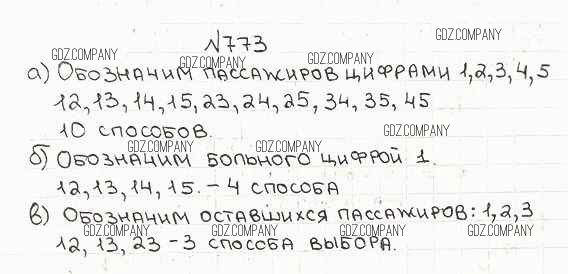 №773
а) Обозначим пассажиров цифрами 1,2,3,4,5
12, 13, 14, 15, 23, 24, 25, 34, 35, 45
10 способов.
б) Обозначим больного цифрой 1.
12, 13, 14, 15. – 4 способа
в) Обозначим оставшихся пассажиров: 1, 2, 3
12, 13, 23 – 3 способа выбора.
GDZ.COMPANY
GDZ.COMPANY
GDZ.COMPANY
GDZ.COMPANY
GDZ.COMPANY
GDZ.COMPANY
GDZ.COMPANY
GDZ.COMPANY
GDZ.COMPANY
GDZ.COMPANY
GDZ.COMPANY
GDZ.COMPANY